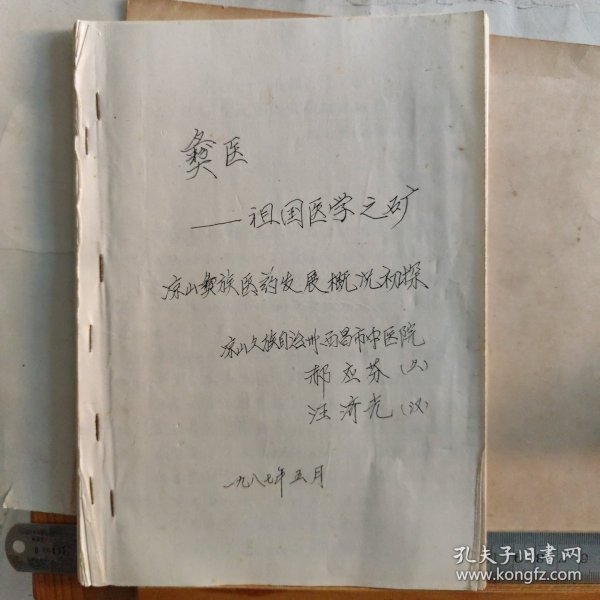 彝医
——祖国医学之矿
凉山彝族医药发展概况初探
凉山久族自治州西昌市中医院
郝应芬(久)
汪济光(汉)
一九八七年五月
孔夫子旧书网
www.kongfz.com